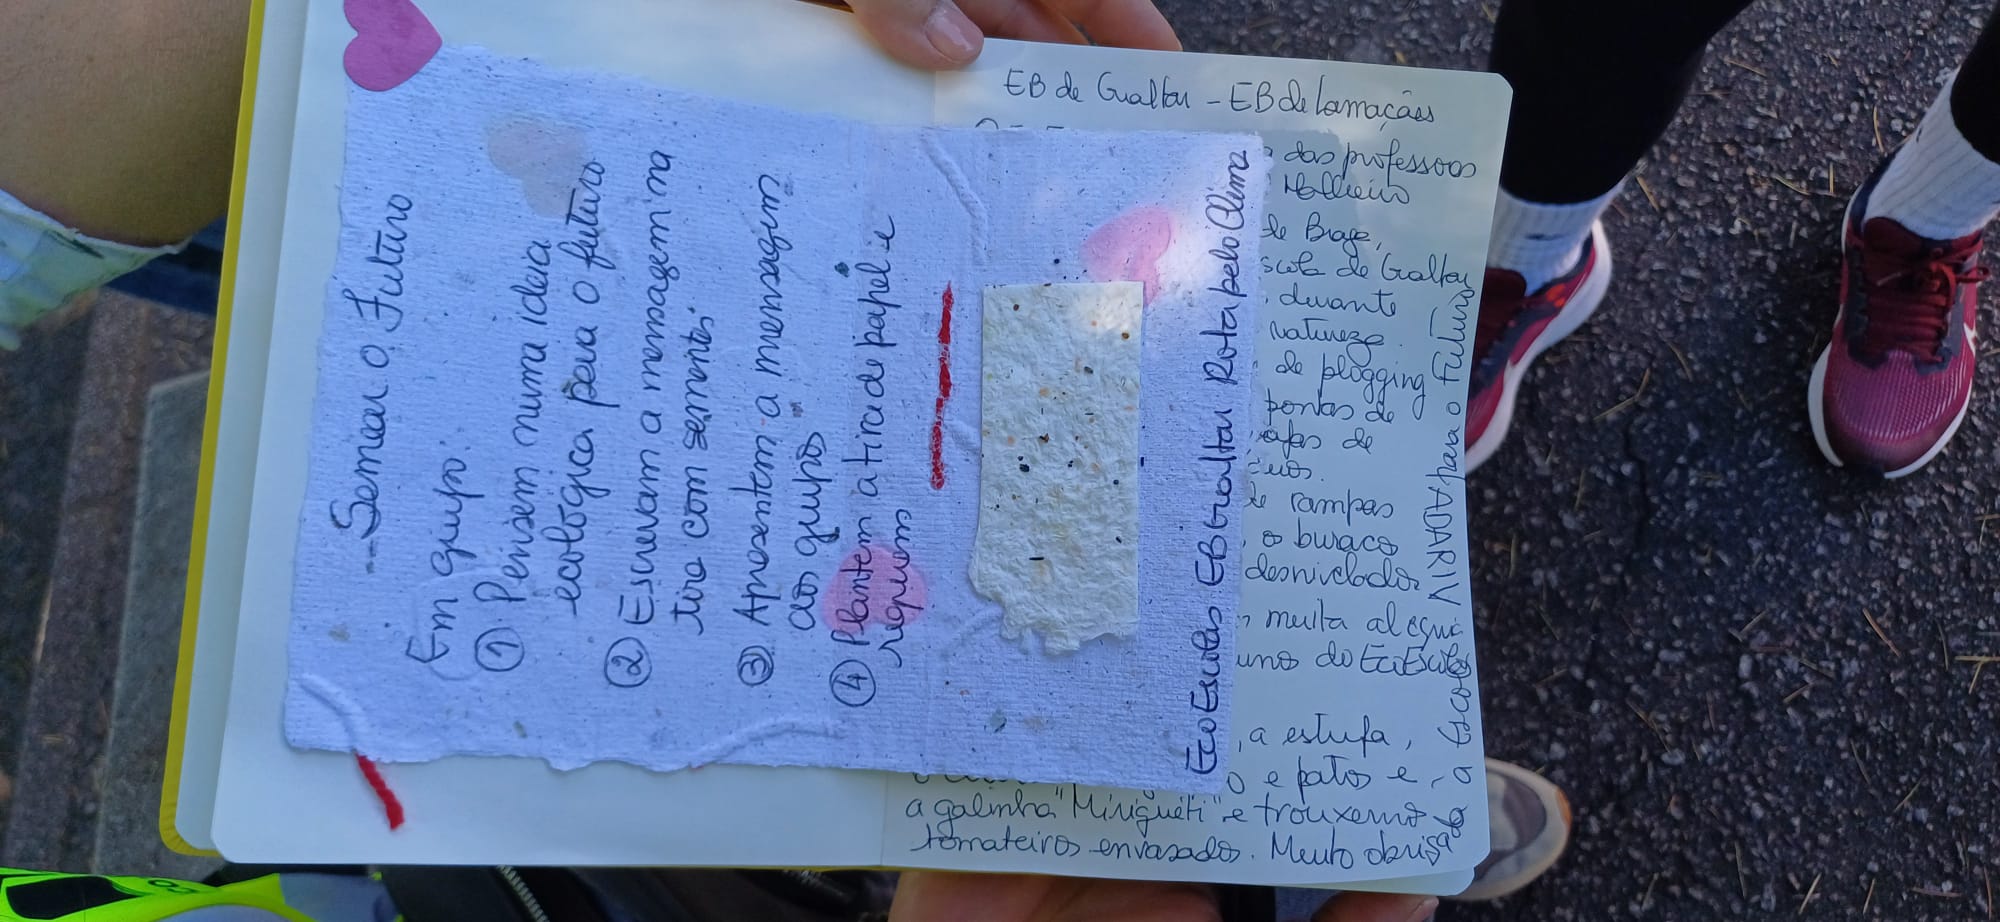 Semear o Futuro
Em grupo:
① Pensem numa ideia
ecológica para o futuro
② Escrevam a mensagem na
tira com sementes
③ Apresentem a mensagem
aos grupos
④ Plantem a tira de papel e
reguem
EcoEscolas EB Gualtar Rota pelo Clima
EB de Gualtar - EB de Lamaçães
das professoras
Molheiro
de Braga,
scola de Gualtar
durante
natureza.
de plogging
pontas de
afas de
rampas
, o buraco
desnivelados
muita alegria
uno do EcoEscolas
, a estufa,
o e patos e
a galinha "Miriguéti" e trouxemos
tomateiros envasados. Muito obrigada a Escola
para o Futuro